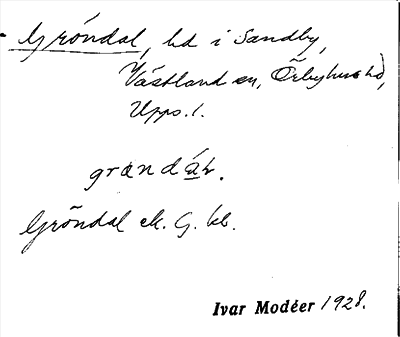 Gröndal, ld i Sandby,
Västland sn, Örbyhus hd,
Upps. l.
grøndáл.
Gröndal ek. G. kb.
Ivar Modéer 1928.